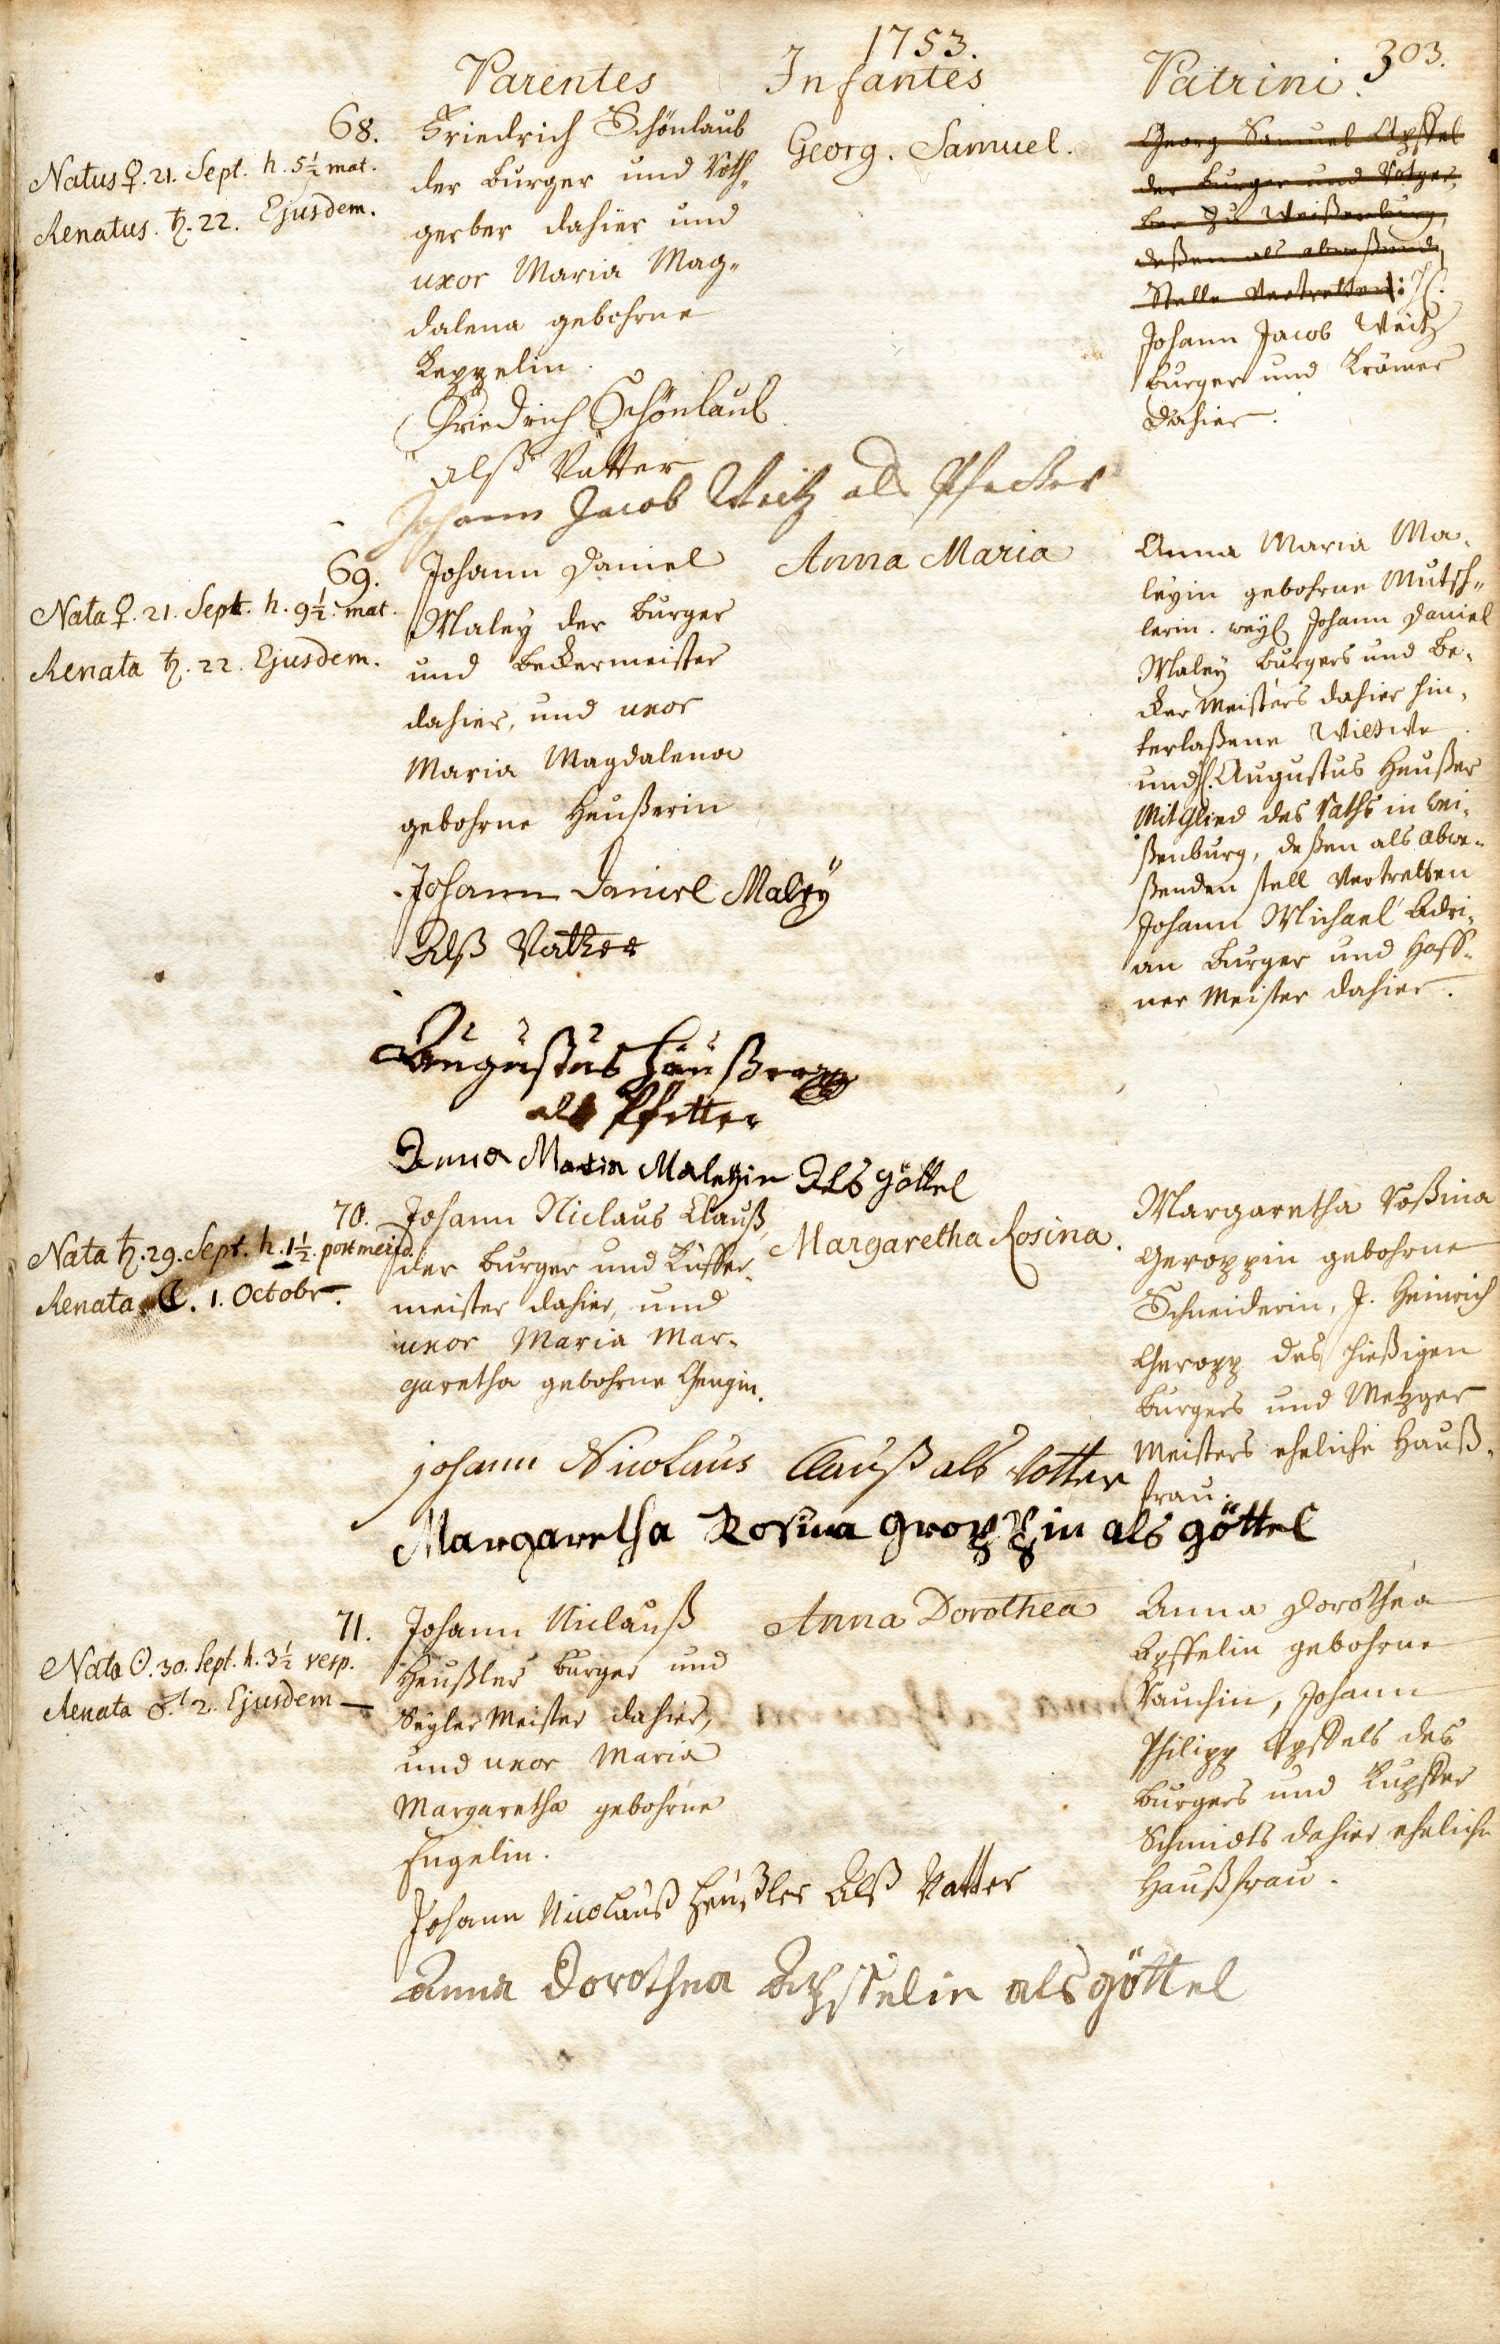 1753.
303.
Parentes Infantes Patrini.
68.
Natus ♀. 21. Sept. h. 5½ mat.
Renatus. ♄. 22. Ejusdem.
Friedrich Schönlaub
der burger und Roth„
gerber dahier und
uxor Maria Mag„
dalena gebohrne
Keppelin.
Georg. Samuel.
Georg Samuel Apffel
der burger und Rotger„
ber zu Weißenburg,
deßen als abweßend
Stelle Vertretten:
Johann Jacob Weitz
burger und Krämer
dahier.
Friedrich Schönlaub
alß Vatter
Johann Jacob Weitz als Pfetter
69.
Nata ♀. 21. Sept. h. 9½ mat.
Renata ♄. 22. Ejusdem.
Johann Daniel
Maley der burger
und beckermeister
dahier, und uxor
Maria Magdalena
gebohrne Heußerin
Anna Maria
Anna Maria Ma„
leyin gebohrne Mutsch„
lerin. weyl Johann Daniel
Maley burgers und be„
cker Meisters dahier hin„
terlaßene Wittwe
und H. Augustus Heußer
Mitglied des Raths in Wei„
ßenburg, deßen als abwe„
ßenden stell Vertretten
Johann Michael Adri„
an burger und Haff„
ner Meister dahier.
Johann Daniel Maley
Alß Vatter
Augustus Häußer
als Pfetter
Anna Maria Maleyin Als göttel
70.
Nata ♄. 29. Sept. h. 1½. post merid.
Renata ☾. 1. Octobr.
Johann Niclaus Clauß,
der burger und Küffer„
meister dahier, und
uxor Maria Mar„
garetha gebohrne Gengin.
Margaretha Rosina.
Margaretha Roßina
Geroppin gebohrne
Schneiderin, J. Heinrich
Geropp des hießigen
burgers und Metzger
Meisters eheliche Hauß„
frau.
johann Nicolaus Clauß als Vatter
Margaretha Rosina Groppin als göttel
71.
Nata ☉. 30. Sept. h. 3½ vesp.
Renata ♂. 2. Ejusdem
Johann Niclauß
Heußler burger und
Seyler Meister dahier,
und uxor Maria
Margaretha gebohrne
Engelin.
Anna Dorothea
Anna Dorothea
Apffelin gebohrne
Rauchin, Johann
Philipp Apffels des
burgers und Kupffer
Schmidts dahier eheliche
Haußfrau.
Johann Nicolauß Heußler Alß Vatter
Anna Dorothea Apffelin als göttel